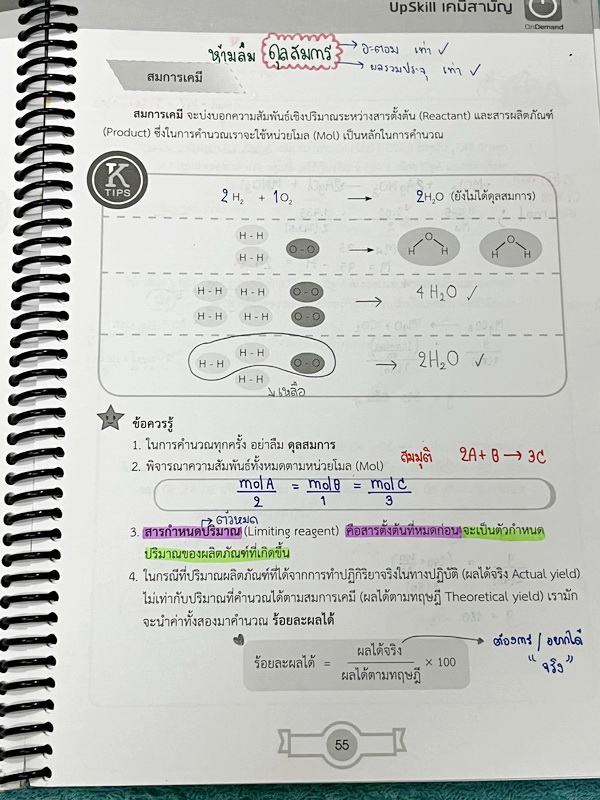 UpSkill เคมีสามัญ
OnDemand
ห้ามลืม ดุลสมการ → อะตอม เท่า ✓
→ ผลรวมประจุ เท่า ✓
สมการเคมี
สมการเคมี จะบ่งบอกความสัมพันธ์เชิงปริมาณระหว่างสารตั้งต้น (Reactant) และสารผลิตภัณฑ์
(Product) ซึ่งในการคำนวณเราจะใช้หน่วยโมล (Mol) เป็นหลักในการคำนวณ
K
TIPS
2 H₂ + 1 O₂ → 2 H₂O (ยังไม่ได้ดุลสมการ)
H - H
H - H
O - O
→
O
H H
O
H H
H - H H - H O - O
H - H H - H O - O
→ 4 H₂O ✓
H - H H - H O - O
H - H
→ 2H₂O ✓
↘ เหลือ
ข้อควรรู้
1. ในการคำนวณทุกครั้ง อย่าลืม ดุลสมการ
2. พิจารณาความสัมพันธ์ทั้งหมดตามหน่วยโมล (Mol) สมมุติ 2A + B → 3C
mol A = mol B = mol C
2 1 3
→ ตัวหมด
3. สารกำหนดปริมาณ (Limiting reagent) คือสารตั้งต้นที่หมดก่อน จะเป็นตัวกำหนด
ปริมาณของผลิตภัณฑ์ที่เกิดขึ้น
4. ในกรณีที่ปริมาณผลิตภัณฑ์ที่ได้จากการทำปฏิกิริยาจริงในทางปฏิบัติ (ผลได้จริง Actual yield)
ไม่เท่ากับปริมาณที่คำนวณได้ตามสมการเคมี (ผลได้ตามทฤษฎี Theoretical yield) เรามัก
จะนำค่าทั้งสองมาคำนวณ ร้อยละผลได้
ร้อยละผลได้ = ผลได้จริง × 100
ผลได้ตามทฤษฎี
ต้องการ / อยากได้
"จริง"
55